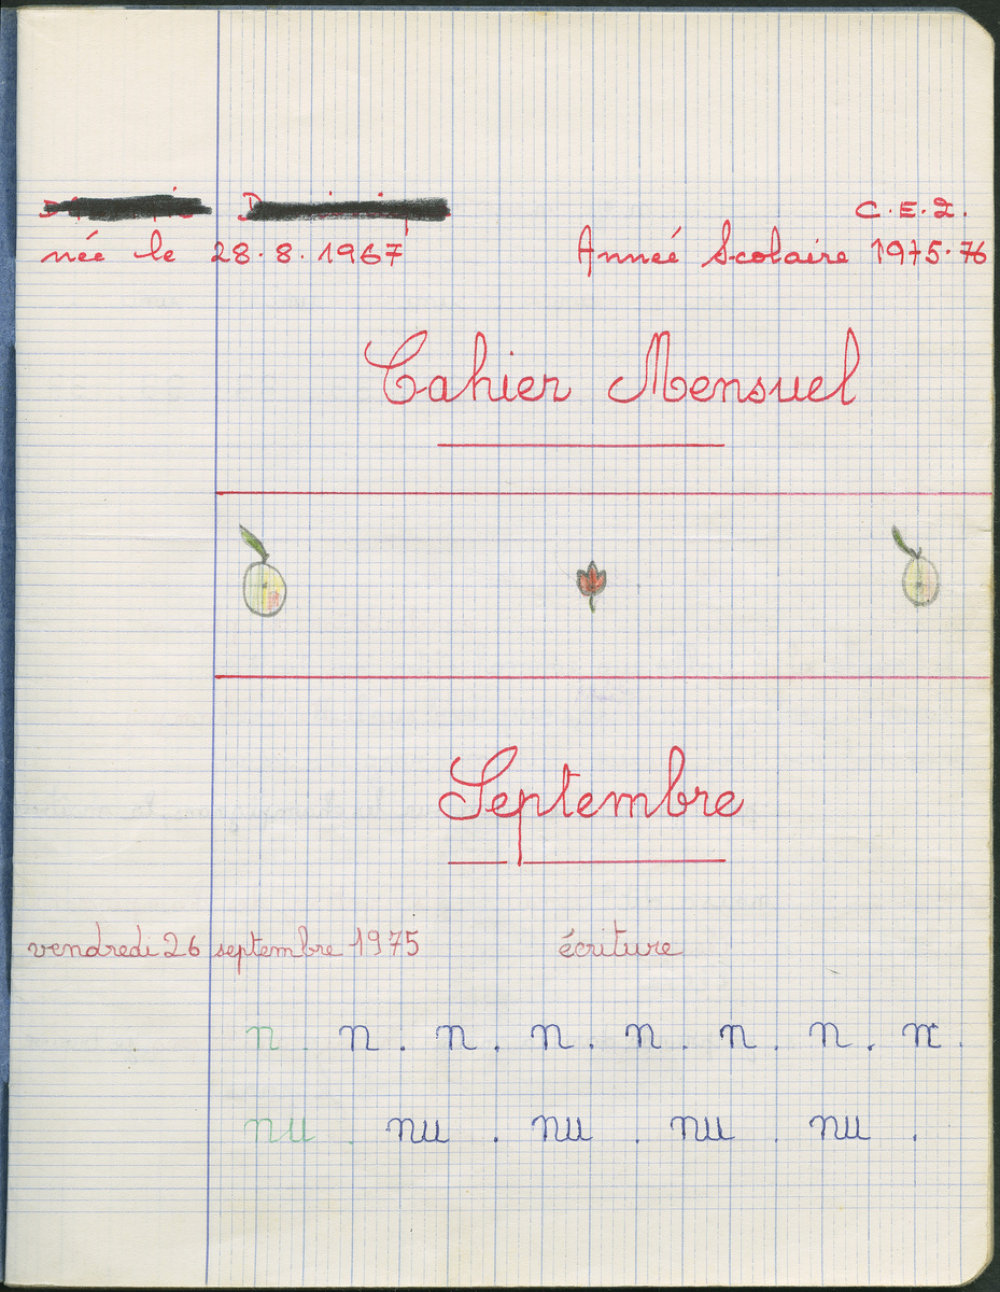 C.E.2.
née le 28.8.1967 Année Scolaire 1975-76
Cahier Mensuel
Septembre
vendredi 26 septembre 1975 écriture
n . n . n . n . n . n . n . n .
nu . nu . nu . nu . nu .